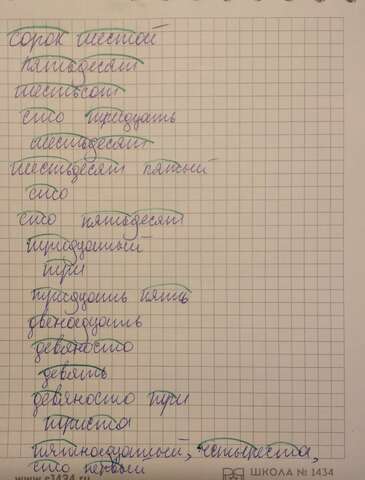 сорок шестой
пятьдесят
шестьсот
сто тридцать
шестьдесят
шестьдесят пятый
сто
сто пятьдесят
тридцатый
три
тридцать пять
двенадцать
девяносто
девять
девяносто три
триста
пятнадцатый, четыреста,
сто первый
www.c1434.ru
ШКОЛА № 1434